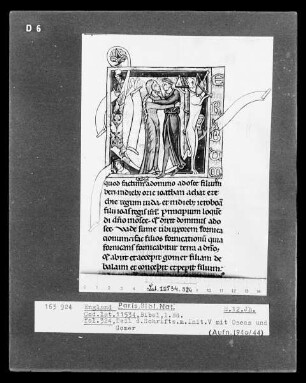 D 6
quod factum a domino ad osee filium
beri in dieb; ozie ioathan achaz ezechie
regum iuda. et in dieb; ieroboam
filii ioas regis isrl. Principium loquendi
dño in osee. Et dixit dominus ad
osee. Vade sume tibi uxorem fornica
tionum. et fac filios fornicationum. quia
fornicans fornicabitur terra a dño.
Et abiit et accepit gomer filiam de
balaim. et concepit et peperit filium.
Lat. 11534. 324
163 904
England
Paris Bibl. Nat.
Cod. lat. 11534. Bibel, 1. Bd.
Fol. 324, Teil d. Schrifts. m. Init. V mit Oseas und
Gomer
(Aufn. 1940/44)